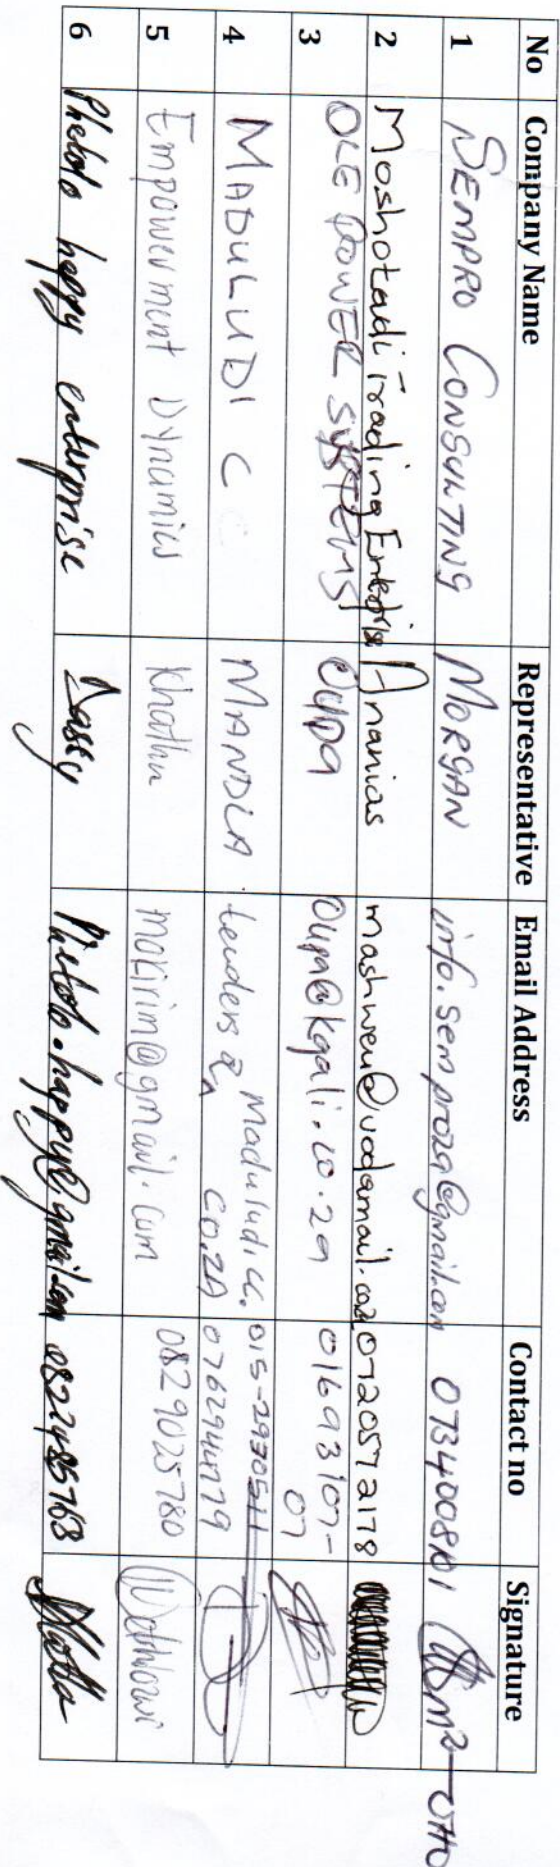 No Company Name Representative Email Address Contact no Signature
1 SEMPRO CONSULTING MORGAN info.semproza@gmail.com
2 Moshotadi Trading Ananias 0720572178
3 OLE POWER SYSTEMS OUPA Oupa@kgali.co.za 01693107-
07
4 MADULUDI CC MANDLA tenders@ Maduludicc. 015-2930511
co.ZA
5 Empowerment Dynamics Khathu makirim@gmail.com 0829025780
6 Phetolo happy enterprise Phetolo.happy@gmail.com